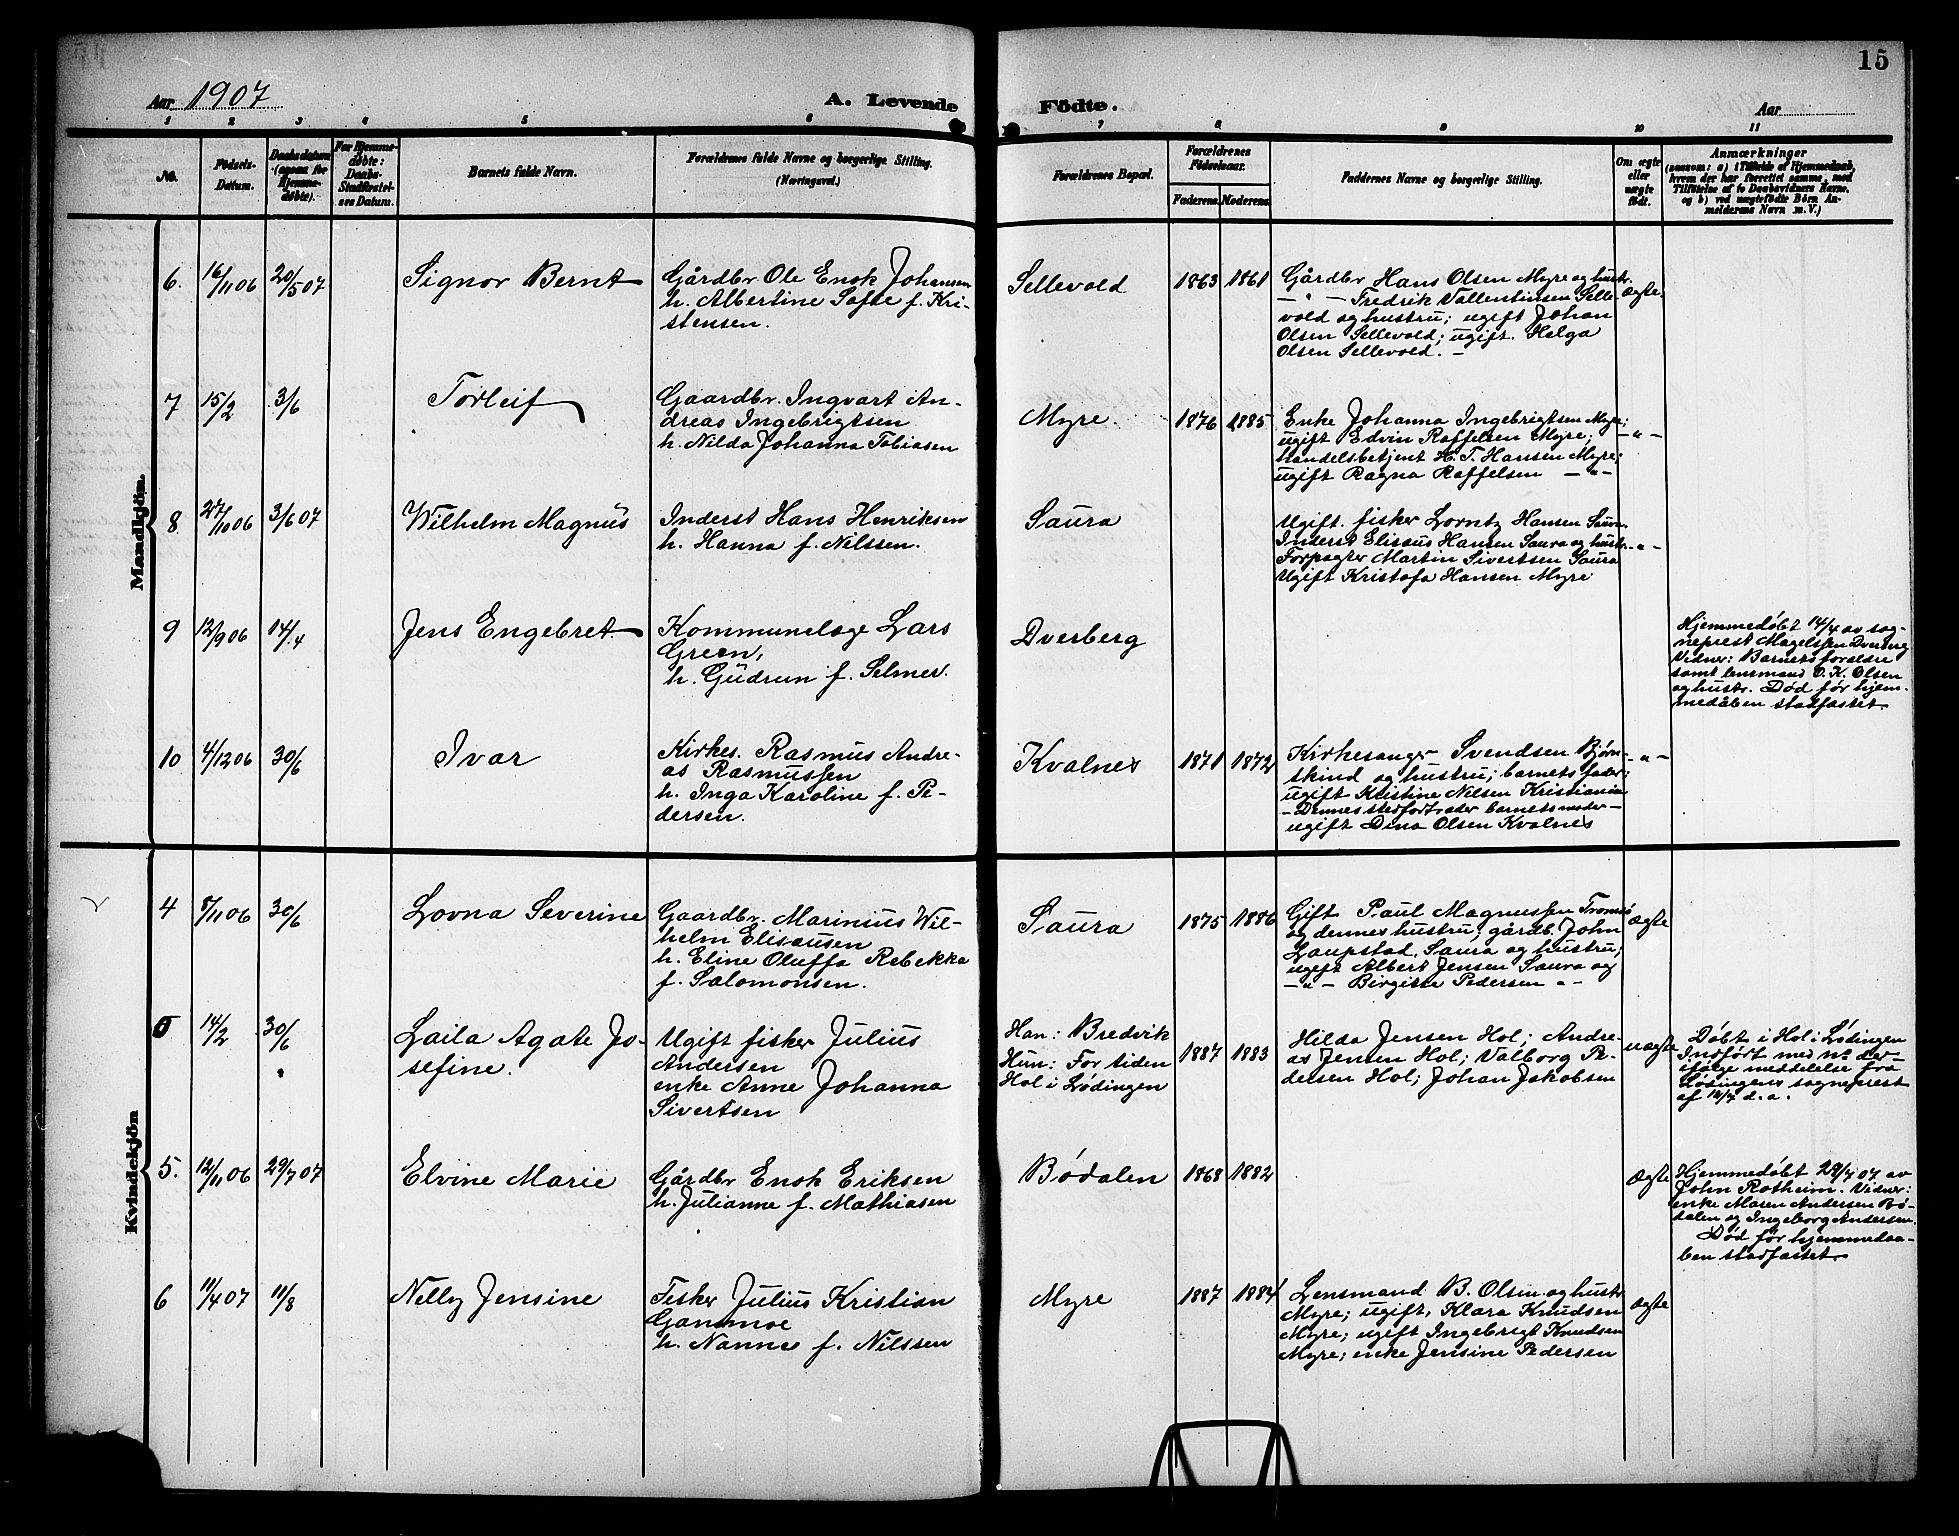 15
Aar 1907
A. Levende Födte.
Aar
1 2 3 4 5 6 7 8 9 10 11
No.
Födsels-
Datum.
Daabsdatum
(ogsaa for
Hjemme-
døbte).
For Hjemme-
døbte:
Daabs-
Stadfæstel-
ses Datum.
Barnets fulde Navn.
Forældrenes fulde Navne og borgerlige Stilling.
(Næringsvei.)
Forældrenes Bopæl.
Forældrenes
Födselsaar.
Faderens. Moderens.
Faddernes Navne og borgerlige Stilling.
Om ægte
eller
uægte
født.
Anmærkninger
(saasom: a) i Tilfælde af Hjemmedaab,
hvem der har forrettet samme, med
Tilføielse af to Daabsvidners Navne.
og b) ved uægtefödte Börn An-
melderens Navn m. V.)
Mandkjön.
6. 16/11 06 20/5 07
Signor Bernt
Gårdbr Ole Enok Johansen
h. Albertine Sofie f. Kri-
stensen.
Sellevold 1863 1861
Gårdbr Hans Olsen Myre og hustr.
— " — Fredrik Vallentinsen Selle-
vold og hustru; ugift Johan
Olsen Sellevold; ugift. Helga
Olsen Sellevold. —
Ægte.
7 15/2 3/6
Torleif
Gaardbr. Ingvart An-
dreas Ingebrigtsen
h. Nilda Johanna Tobiasen
Myre. 1876 1885
Enke Johanna Ingebrigtsen Myre;
ugift Edvin Raffelsen Myre;
Handelsbetjent H. T. Hansen Myre;
ugift Ragna Raffelsen — " —
— " —
8 27/10 06 3/6 07
Wilhelm Magnus
Inderst Hans Henriksen
h. Hanna f. Nilssen.
Saura
Ugift. fisker Lorntz Hansen Saura
Inderst Elisæus Hansen Saura og hustr.
Forpagter Martin Sivertsen Saura
Ugift Kristofa Hansen Myre
— " —
9 12/9 06 14/4
Jens Engebret
Kommunelæge Lars
Green,
h. Gudrun f. Selmer.
Dverberg
Hjemmedøbt 14/4 av sog-
neprest Magelssen Dverberg
Vidner: Barnets forældre
samt lensmand O. K. Olsen
og hustr. Død før hjem-
medåben stadfæstet.
10 4/12 06 30/6
Ivar
Kirkes. Rasmus Andre-
as Rasmussen
h. Inga Karoline f. Pe-
dersen.
Kvalnes 1871 1872
Kirkesanger Svendsen Bjørn-
skind og hustru; barnets fader;
ugift Kristine Nilsen Kristiania
— Dennes stedfortræder barnets moder —
ugift Dina Olsen Kvalnes
— " —
Kvindekjön
4 8/11 06 30/6
Lovna Severine
Gaardbr. Marinius Wil-
helm Elisæusen
h. Eline Oluffa Rebekka
f. Salomonsen.
Saura 1875 1886
Gift Paul Magnussen Tromsø
og dennes hustru; gårdb. John
Laupstad, Saura og hustru;
ugift Albert Jensen Saura og
— " — Birgitte Pedersen — " —
Ægte
5 14/2 30/6
Laila Agate Jo-
sefine.
Ugift fisker Julius
Andersen
enke Anne Johanna
Sivertsen
Han: Bredvik
Hun: For tiden
Hol i Lødingen
1887 1883
Hilda Jensen Hol; Andre-
as Jensen Hol; Valborg Pe-
dersen Hol; Johan Jakobsen
uægte
Døbt i Hol i Lødingen
Indført med nr der-
ifølge meddelelse fra
Lødingens sogneprest
af 14/4 d. a.
5. 12/11 06 29/7 07
Elvine Marie
Gårdbr Enok Eriksen
h. Julianne f. Mathiasen
Bødalen 1868 1882
Ægte
Hjemmedøbt 29/7 07 av
John Rotheim. Vidner:
enke Maren Andersen Bø-
dalen og Ingeborg Andersen.
Død før hjemmedaa-
ben stadfæstet.
6 11/4 07 11/8
Nelly Jensine
Fisker Julius Kristian
Gammoe
h. Nanna f. Nilssen
Myre 1887 1884
Lensmand B. Olsen og hustr
Myre; ugift, Klara Knudsen
Myre; ugift Ingebrigt Knudsen
Myre; enke Jensine Pedersen
Ægte